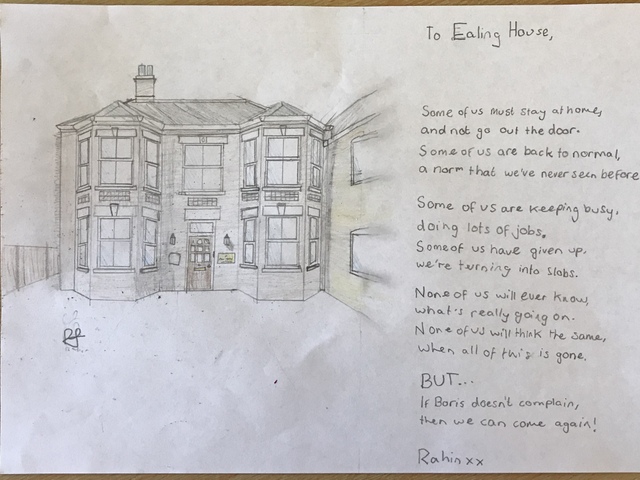 To Ealing House,
Some of us must stay at home,
and not go out the door.
Some of us are back to normal,
a norm that we've never seen before
Some of us are keeping busy,
doing lots of jobs.
Some of us have given up,
we're turning into slobs.
None of us will ever know,
what's really going on.
None of us will think the same,
when all of this is gone.
BUT...
If Boris doesn't complain,
then we can come again!
Rahin xx